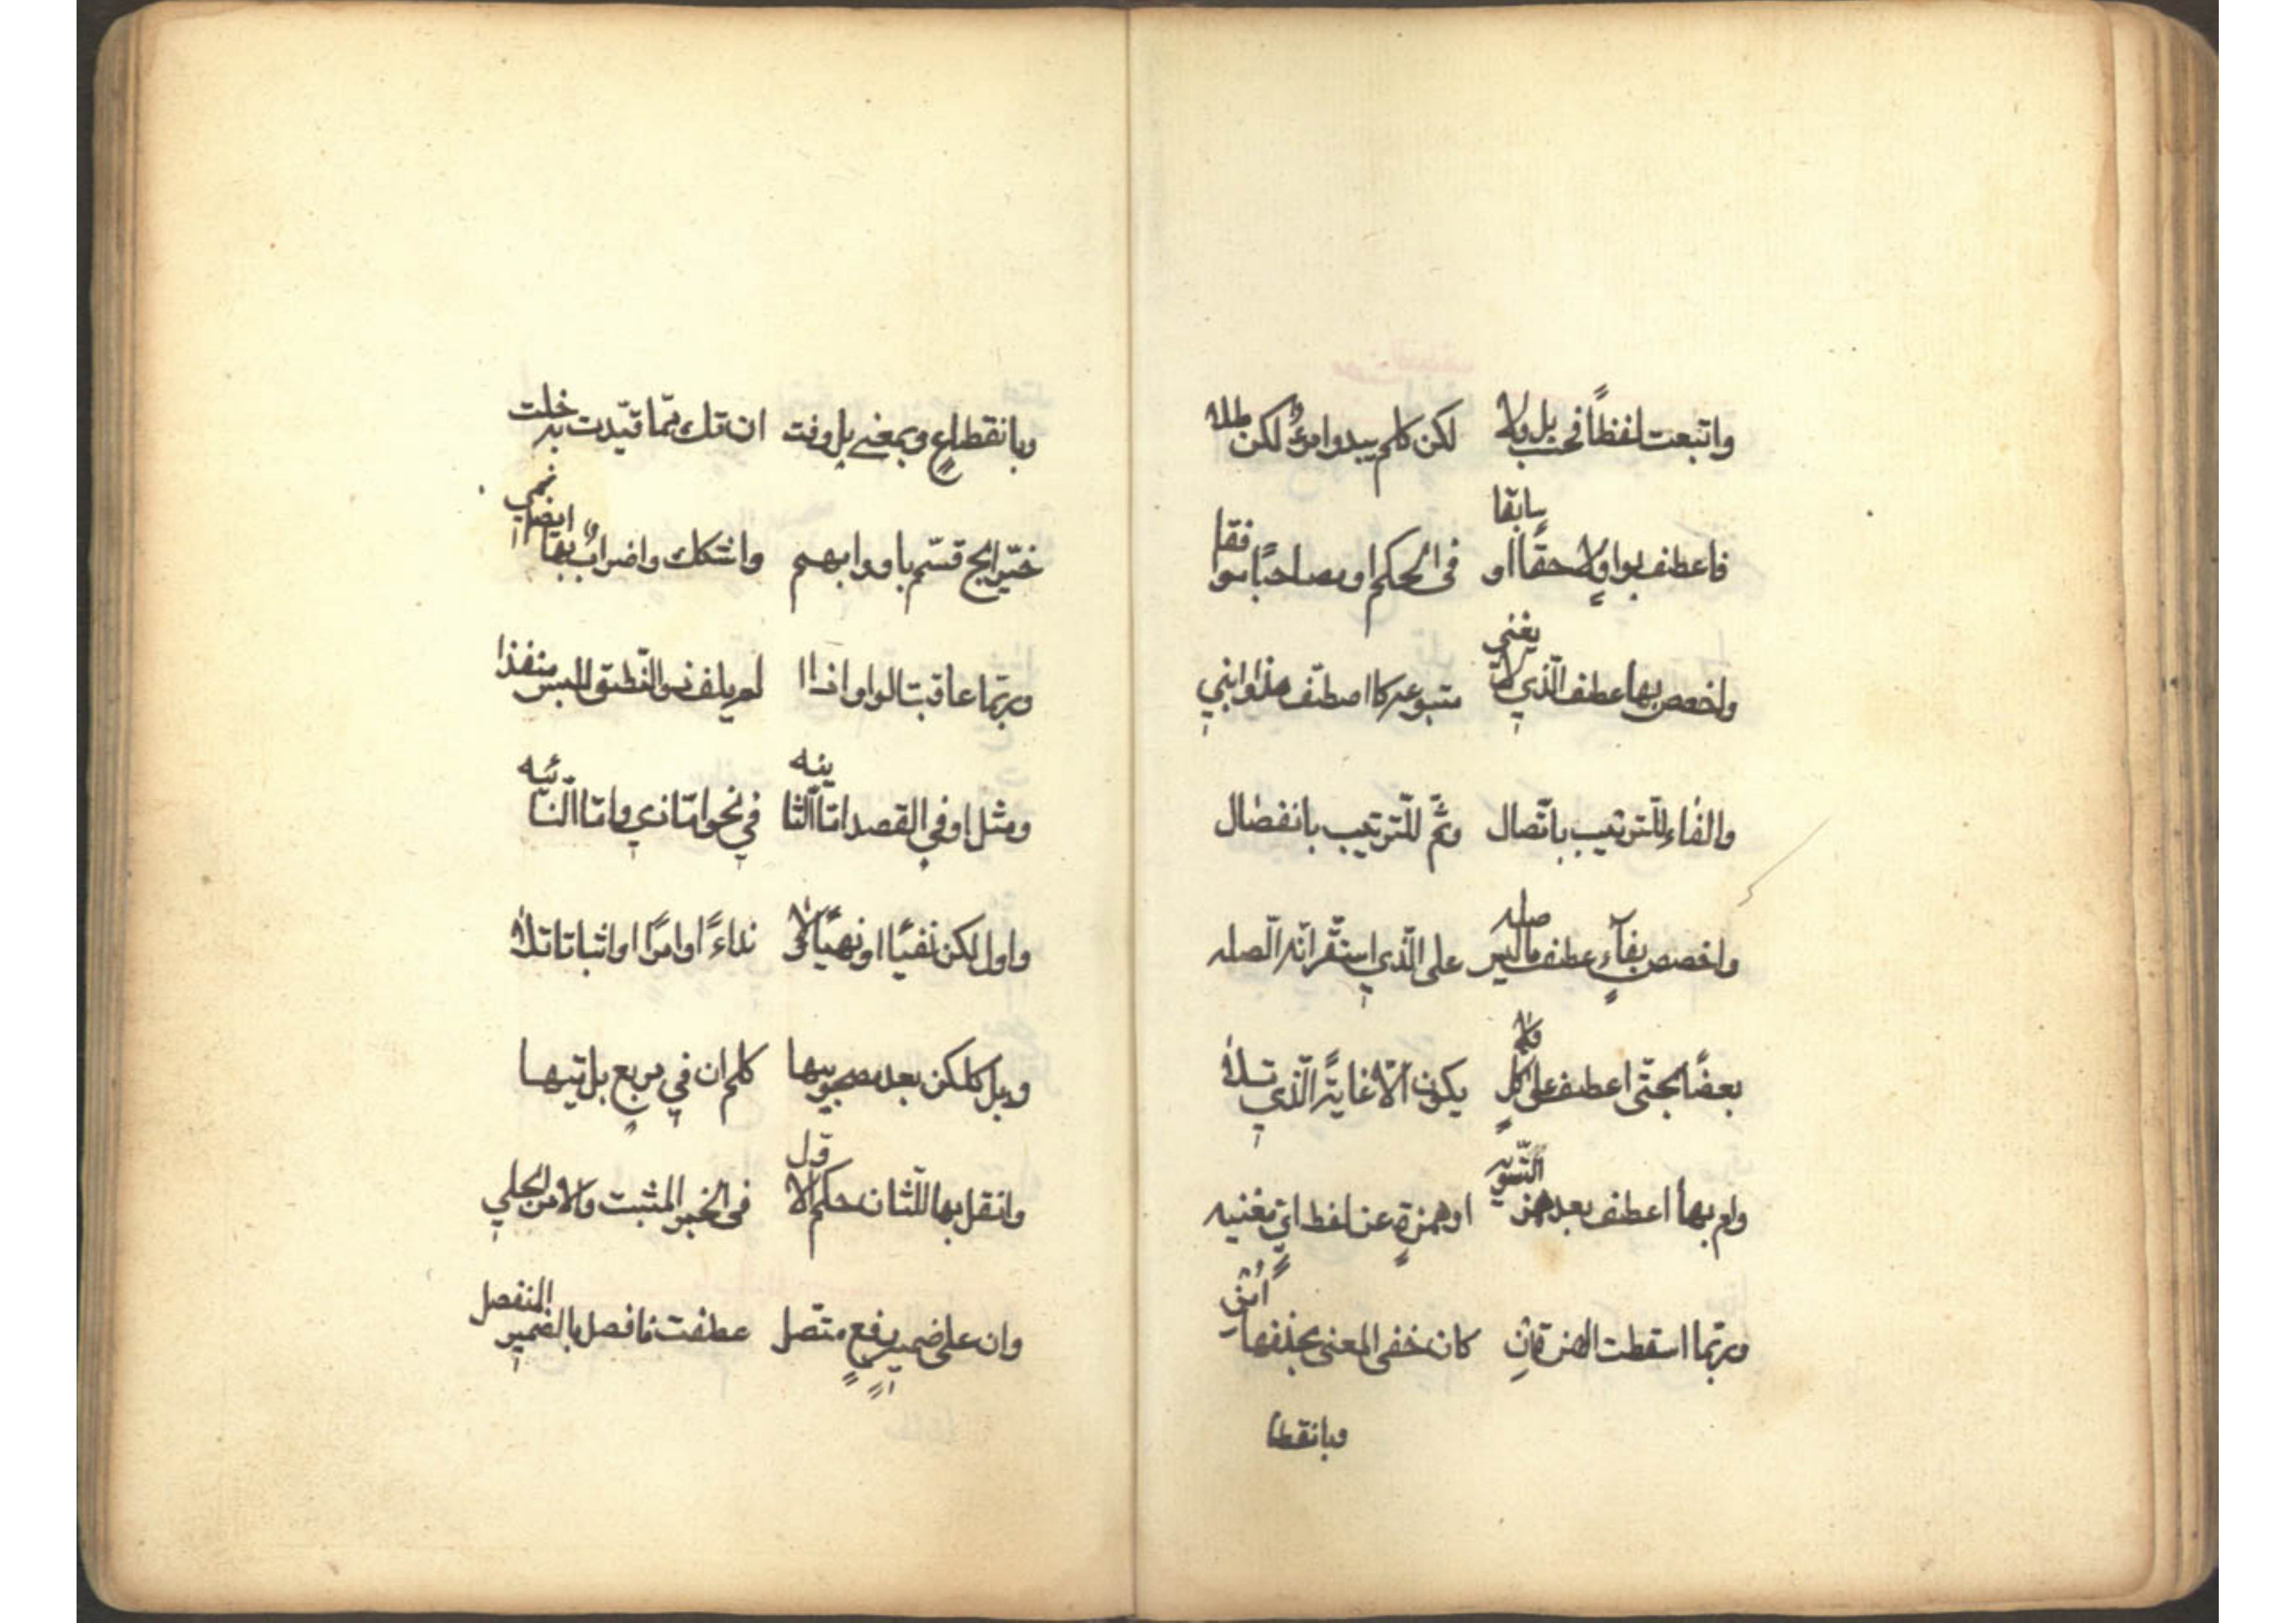 واتبعت لفظاً فحسب بل ولا لكن كلم يبدوا مرؤٌ لكن طلا
فاعطف بواو لاحقًا او سابقا في الحكم او مصاحبًا موافقا
واخصص بها عطف الّذي لا يغني متبوعه كاصطفّ هذا وابني
والفاء للتّرتيب باتّصال وثمّ للتّرتيب بانفصال
واخصص بفآءٍ عطف ما ليس صله على الّذي استقرّ انّه الصّله
بعضًا بحتّى اعطف على كلٍّ ولا يكون الّا غايةً الّذي تلا
وام بها اعطف بعد همز التّسويه او همزةٍ عن لفظ ايٍّ مغنيه
وربّما اسقطت الهمزة ان كان خفى المعنى بحذفها أُمِن
وبانقطا
وبانقطاعٍ وبمعنى بل وفت ان تك ممّا قيّدت به خلت
خيّر ابح قسّم باو وابهم واشكك واضرابٌ بها ايضا نمي
وربّما عاقبت الواو اذا لم يلف ذو النّطق للبس منفذا
ومثل او في القصد امّا الثّانيه في نحو امّا ذي وامّا النّائيه
واول لكن نفيًا او نهيًا ولا نداءً او امرًا او اثباتا تلا
وبل كلكن بعد مصحوبيها كلم اكن في مربعٍ بل تيها
وانقل بها للثّان حكم الاوّل في الخبر المثبت والامر الجلي
وان على ضميرِ رفعٍ متّصل عطفت فافصل بالضّمير المنفصل